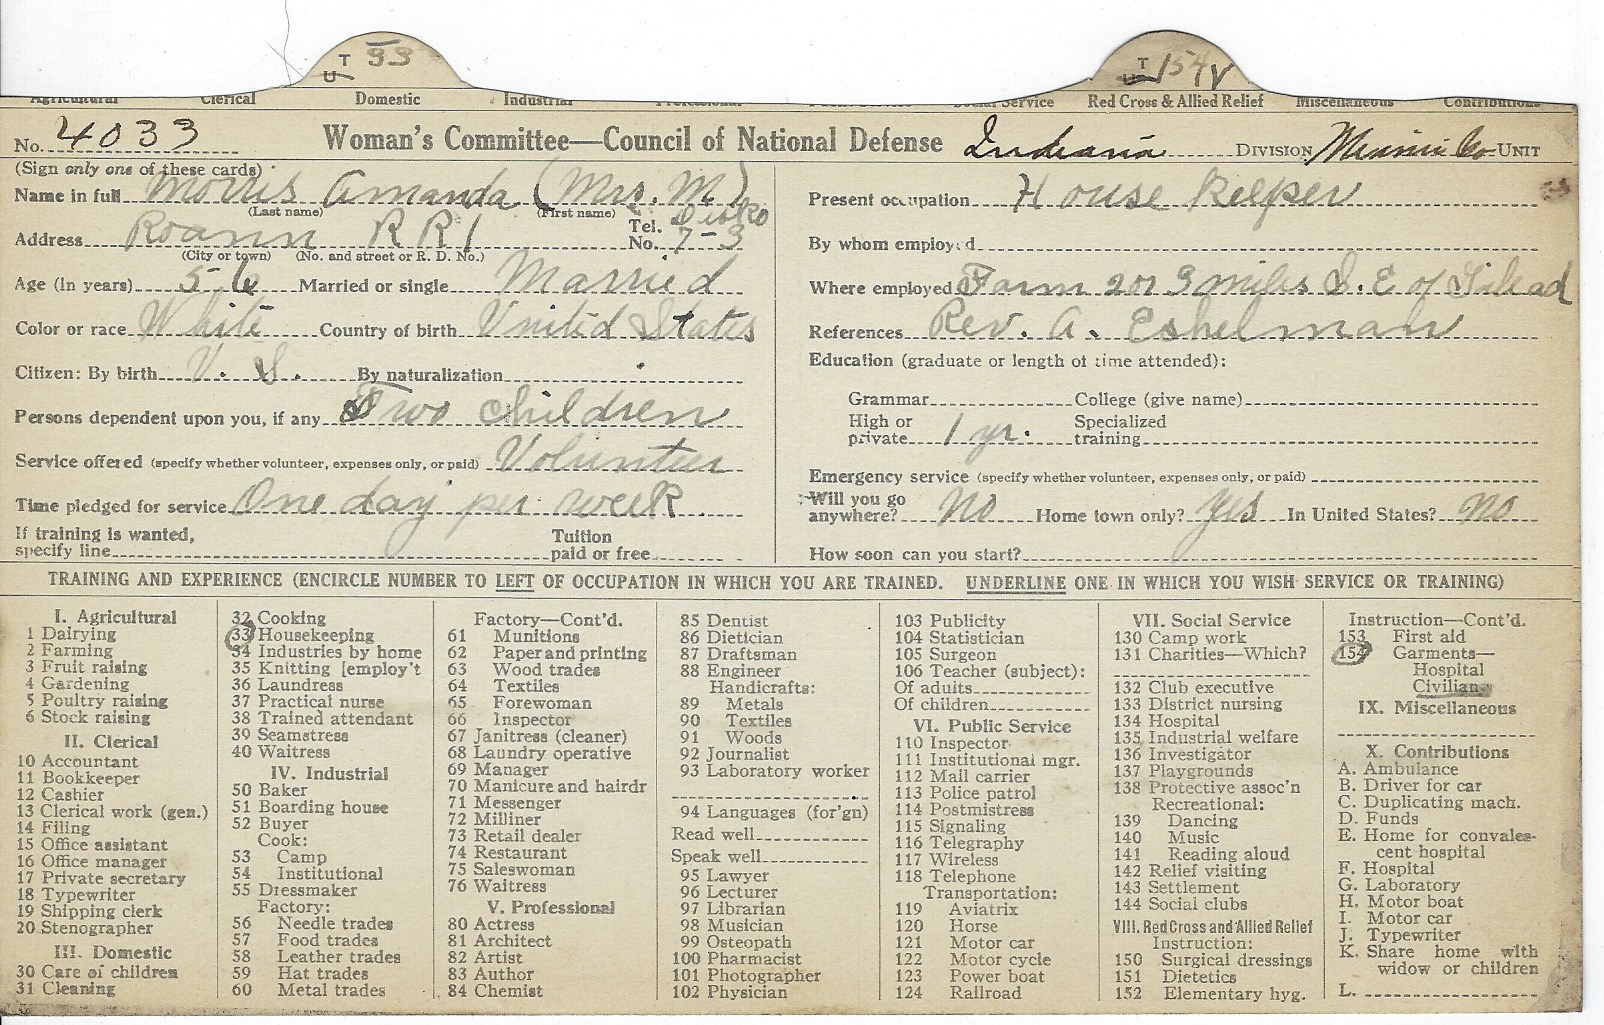 T 33
U
T 154 V
U
Agricultural Clerical Domestic Industrial Professional Social Service Red Cross & Allied Relief Miscellaneous Contributions
No. 4033 Woman's Committee—Council of National Defense Indiana DIVISION Miami Co UNIT
(Sign only one of these cards)
Name in full Morris Amanda (Mrs. M)
(Last name) (First name)
Address Roann RR1 Tel. No. 7-3
(City or town) (No. and street or R. D. No.)
Age (in years) 56 Married or single Married
Color or race White Country of birth United States
Citizen: By birth U. S. By naturalization
Persons dependent upon you, if any Two children
Service offered (specify whether volunteer, expenses only, or paid) Volunteer
Time pledged for service One day per week
If training is wanted, specify line Tuition paid or free
Present occupation House Keeper
By whom employed
Where employed Farm 2 or 3 miles S. E of Gilead
References Rev. A. Eshelman
Education (graduate or length of time attended):
Grammar College (give name)
High or private 1 yr. Specialized training
Emergency service (specify whether volunteer, expenses only, or paid)
Will you go anywhere? No Home town only? Yes In United States? No
How soon can you start?
TRAINING AND EXPERIENCE (ENCIRCLE NUMBER TO LEFT OF OCCUPATION IN WHICH YOU ARE TRAINED. UNDERLINE ONE IN WHICH YOU WISH SERVICE OR TRAINING)
I. Agricultural
1 Dairying
2 Farming
3 Fruit raising
4 Gardening
5 Poultry raising
6 Stock raising
II. Clerical
10 Accountant
11 Bookkeeper
12 Cashier
13 Clerical work (gen.)
14 Filing
15 Office assistant
16 Office manager
17 Private secretary
18 Typewriter
19 Shipping clerk
20 Stenographer
III. Domestic
30 Care of children
31 Cleaning
32 Cooking
33 Housekeeping
34 Industries by home
35 Knitting [employ't
36 Laundress
37 Practical nurse
38 Trained attendant
39 Seamstress
40 Waitress
IV. Industrial
50 Baker
51 Boarding house
52 Buyer
Cook:
53 Camp
54 Institutional
55 Dressmaker
Factory:
56 Needle trades
57 Food trades
58 Leather trades
59 Hat trades
60 Metal trades
Factory—Cont'd.
61 Munitions
62 Paper and printing
63 Wood trades
64 Textiles
65 Forewoman
66 Inspector
67 Janitress (cleaner)
68 Laundry operative
69 Manager
70 Manicure and hairdr
71 Messenger
72 Milliner
73 Retail dealer
74 Restaurant
75 Saleswoman
76 Waitress
V. Professional
80 Actress
81 Architect
82 Artist
83 Author
84 Chemist
85 Dentist
86 Dietician
87 Draftsman
88 Engineer
Handicrafts:
89 Metals
90 Textiles
91 Woods
92 Journalist
93 Laboratory worker
94 Languages (for'gn)
Read well
Speak well
95 Lawyer
96 Lecturer
97 Librarian
98 Musician
99 Osteopath
100 Pharmacist
101 Photographer
102 Physician
103 Publicity
104 Statistician
105 Surgeon
106 Teacher (subject):
Of adults
Of children
VI. Public Service
110 Inspector
111 Institutional mgr.
112 Mail carrier
113 Police patrol
114 Postmistress
115 Signaling
116 Telegraphy
117 Wireless
118 Telephone
Transportation:
119 Aviatrix
120 Horse
121 Motor car
122 Motor cycle
123 Power boat
124 Railroad
VII. Social Service
130 Camp work
131 Charities—Which?
132 Club executive
133 District nursing
134 Hospital
135 Industrial welfare
136 Investigator
137 Playgrounds
138 Protective assoc'n
Recreational:
139 Dancing
140 Music
141 Reading aloud
142 Relief visiting
143 Settlement
144 Social clubs
VIII. Red Cross and Allied Relief
Instruction:
150 Surgical dressings
151 Dietetics
152 Elementary hyg.
Instruction—Cont'd.
153 First aid
154 Garments—
Hospital
Civilian
IX. Miscellaneous
X. Contributions
A. Ambulance
B. Driver for car
C. Duplicating mach.
D. Funds
E. Home for convales-
cent hospital
F. Hospital
G. Laboratory
H. Motor boat
I. Motor car
J. Typewriter
K. Share home with
widow or children
L.